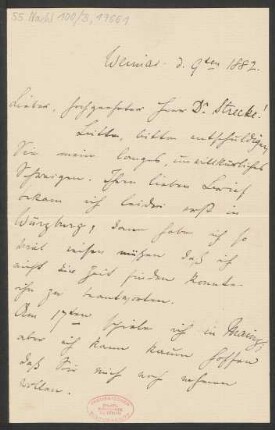 55 Nachl 100/B, 1
Weimar d. 9ten 1882.
Lieber, hochgeehrter Herr Dr. Strecke!
Bitte, bitte entschuldigen
Sie mein langes, unwillkürliches
Schweigen. Ihren lieben Brief
bekam ich leider erst in
Würzburg, dann habe ich so
viel reisen müssen daß ich
nicht die Zeit finden konnte
ihn zu beantworten.
Am 17ten spiele ich in Mainz,
aber ich kann kaum hoffen
daß Sie mich noch nehmen
wollen.